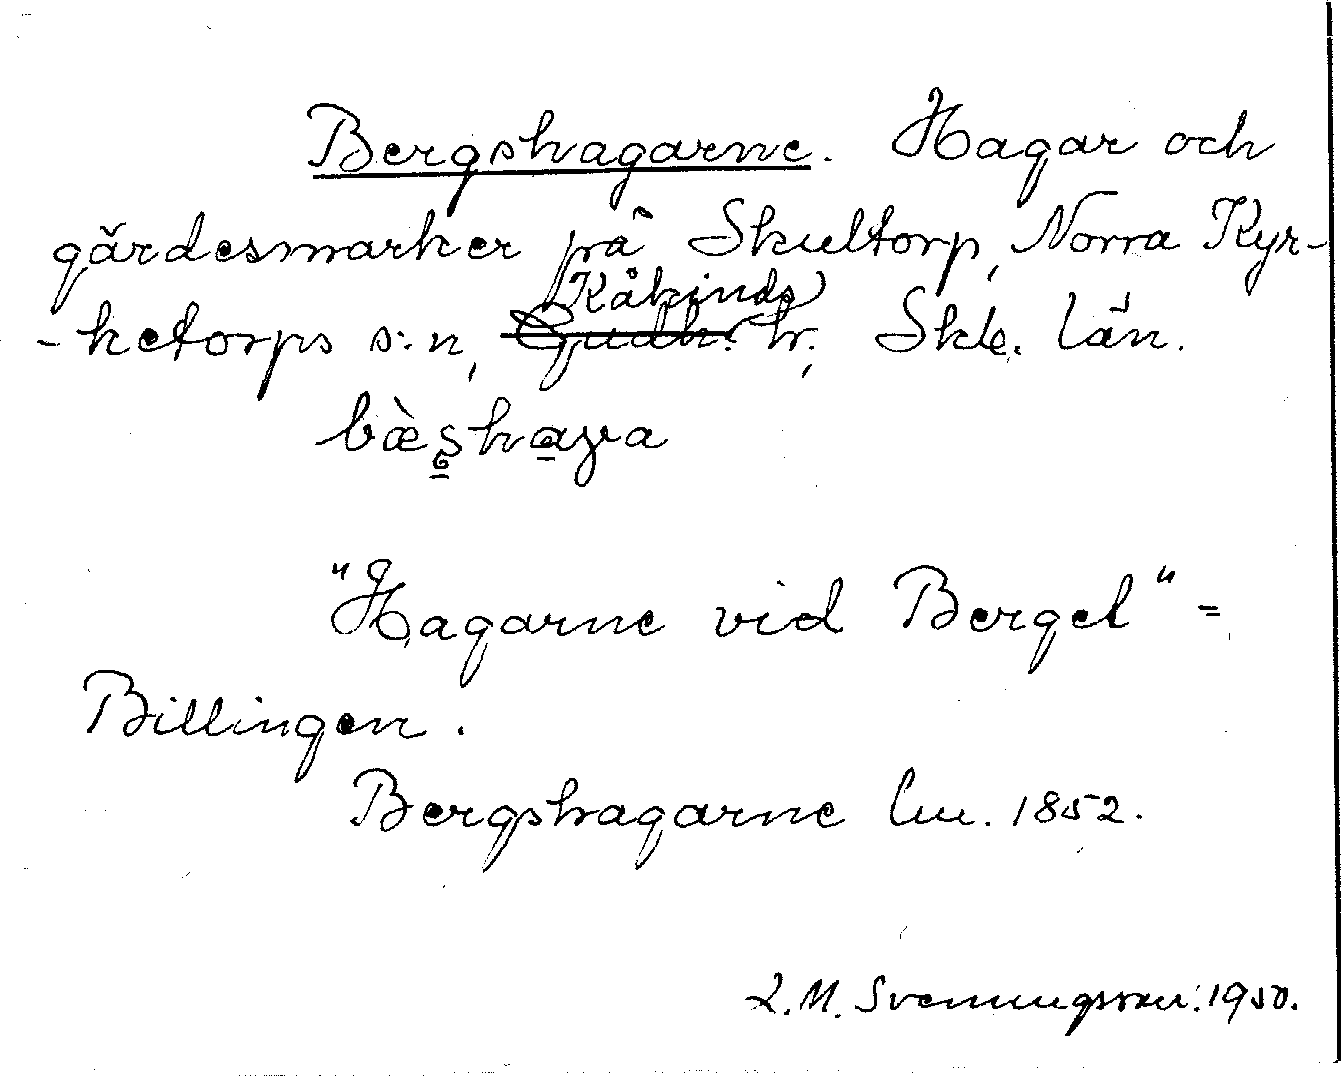 Bergshagarne. Hagar och
gärdesmarker på Skultorp, Norra Kyr-
Kåkinds
-ketorps s:n, Gudh. hr, Skb. län.
bæ̀shaga
"Hagarne vid Berget" =
Billingen.
Bergshagarne lm. 1852.
L.M. Svenungsson. 1950.